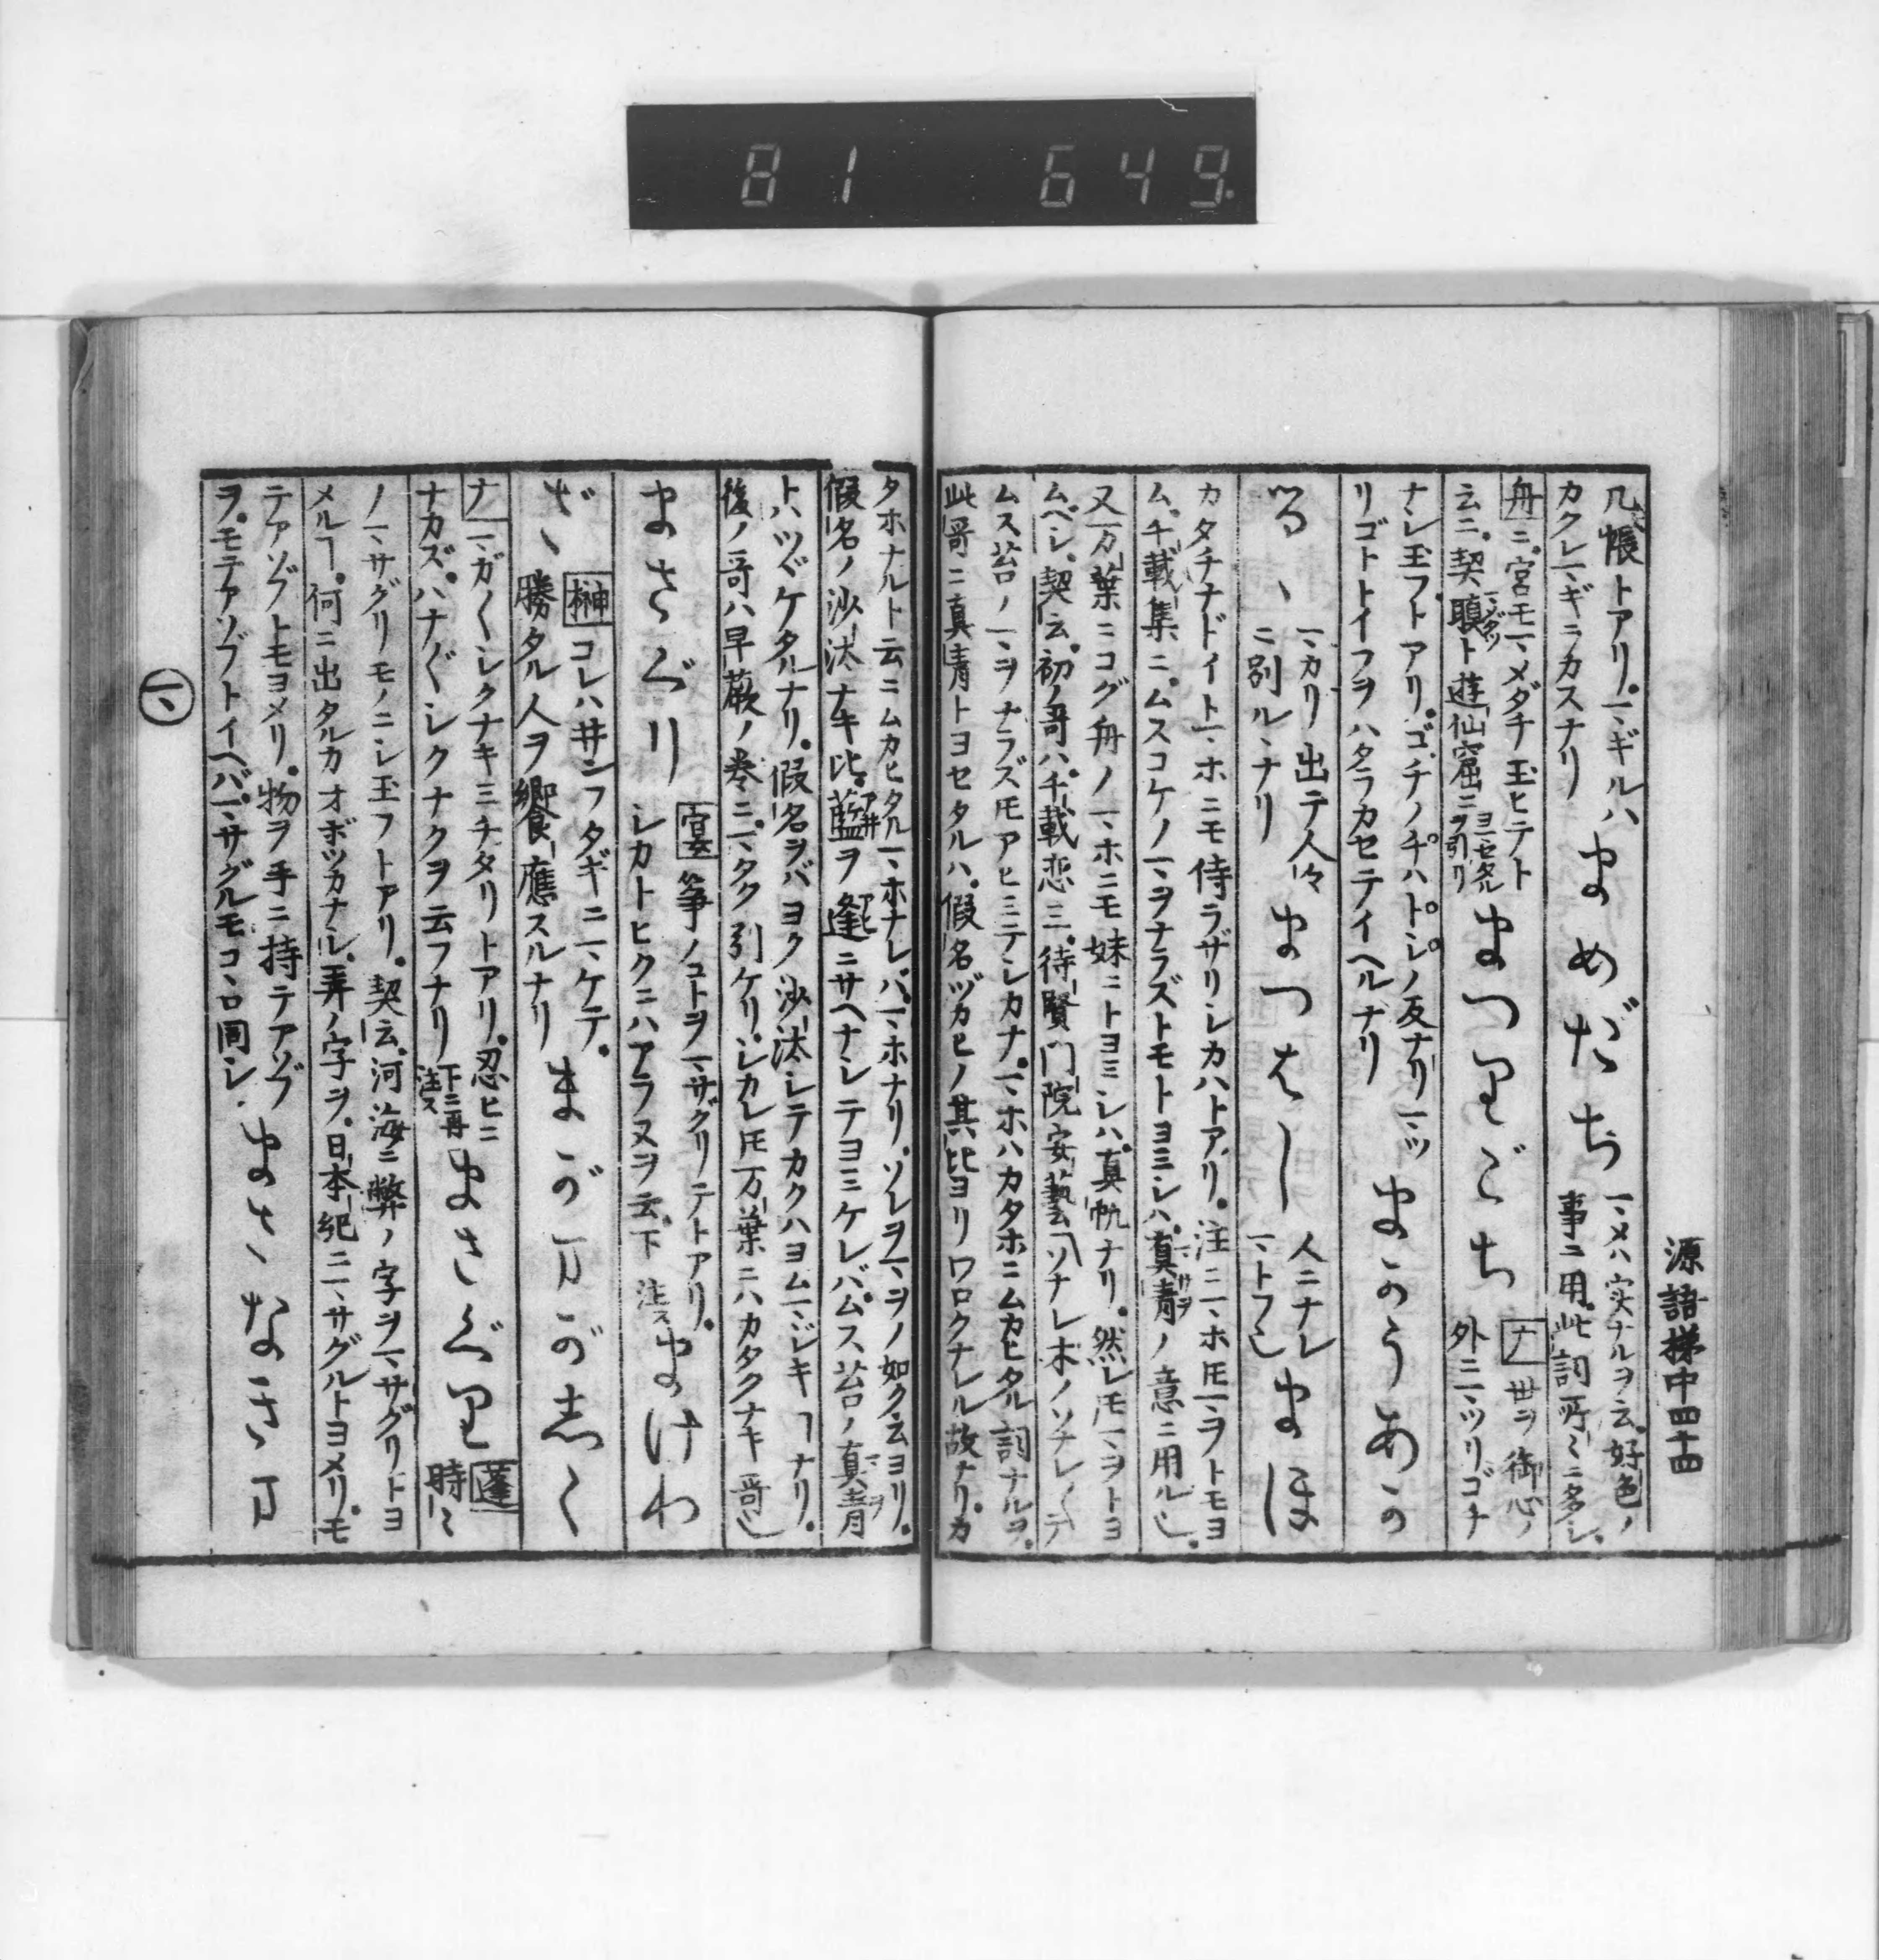 81 649
源語梯中四十四
几帳トアリ。マギルハ
カクレマギラカスナリ
まめだち
マメハ実ナルヲ云。好色ノ
事ニ用。此詞所々ニ多シ。
舟ニ。宮モマメダチ玉ヒテト
云ニ。契𦗕ト遊仙窟ニヨマセタルヲ引リ
まつりごち
ナ 世ヲ御心ノ
外ニマツリゴチ
ナシ玉フトアリ。ゴチノチハトシノ反ナリマツ
リゴトトイフヲハタラカセテイヘルナリ
まかうあか
るゝ
マカリ出テ人々
ニ別ルヽナリ
まつはし
人ニナレ
マトフ也
まほ
カタチナドイトマホニモ侍ラザリシカハトアリ。注ニマホモマヲトモヨ
ム。千載集ニ。ムスコケノマヲナラズトモトヨミシハ。真青ノ意ニ用ル也。
又万葉ニコグ舟ノマホニモ妹ニトヨミシハ。真帆ナリ。然レ𪜈マヲトヨ
ムベシ。契云。初ノ哥ハ。千載恋三。待賢門院安藝「ソナレ木ノソナレ〳〵テ
ムス苔ノマヲナラズ𪜈アヒミテシカナ。マホハカタホニムカヒタル詞ナルヲ。
此哥ニ真青トヨセタルハ。假名ヅカヒノ其比ヨリワロクナレル故ナリ。カ
タホナルト云ニムカヒタルマホナレバ。マホナリ。ソレヲマヲノ如ク云ヨリ。
假名ノ沙汰ナキ比。藍ヲ逢ニサヘナシテヨミケレバ。ムス苔ノ真青
トハツヾケタルナリ。假名ヲバヨク沙汰シテカクハヨムマジキヿナリ。
後ノ哥ハ早蕨ノ巻ニ。マタク引ケリ。シカレ𪜈万葉ニハカタクナキ哥也
まさぐり
宴 箏ノコトヲマサグリテトアリ。
シカトヒクニハアラヌヲ云。下注ス
まけわ
ざゝ
榊 コレハ井ンフタギニマケテ。
勝タル人ヲ饗應スルナリ
まがまがしく
ナ マガ〳〵シクナキミチタリトアリ。忍ヒニ
ナカズ。ハナ〴〵シクナクヲ云フナリ 下ニ再注ス
まさぐり
蓬
時々
ノマサグリモノニシ玉フトアリ。契云。河海ニ弊ノ字ヲマサグリトヨ
メルヿ。何ニ出タルカオボツカナシ。弄ノ字ヲ。日本紀ニマサグルトヨメリ。モ
テアソブトモヨメリ。物ヲ手ニ持テアソブ
ヲ。モテアソブトイヘバ。マサグルモコヽロ同シ
まさなきま
マ